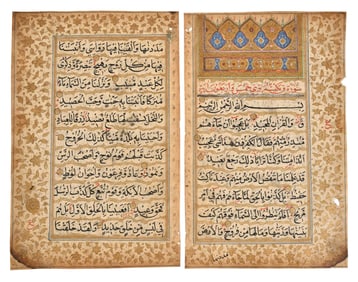 بسم الله الرحمن الرحيم
ق والقرآن المجيد بل عجبوا ان جاءهم
منذر منهم فقال الكافرون هذا شىء
عجيب ءاذا متنا وكنا ترابا ذلك رجع بعيد
قد علمنا ما تنقص الارض منهم وعندنا كتاب
حفيظ بل كذبوا بالحق لما جاءهم فهم فى امر
مريج افلم ينظروا الى السماء فوقهم كيف
بنيناها وزيناها وما لها من فروج والارض
مددناها والقينا فيها رواسى وانبتنا
فيها من كل زوج بهيج تبصرة وذكرى
لكل عبد منيب ونزلنا من السماء ماء
مباركا فانبتنا به جنات وحب الحصيد
والنخل باسقات لها طلع نضيد رزقا للعباد
واحيينا به بلدة ميتا كذلك الخروج كذبت
قبلهم قوم نوح واصحاب الرس وثمود وعاد وفرعون واخوان لوط
واصحاب الايكة وقوم تبع كل كذب الرسل
فحق وعيد افعيينا بالخلق الاول بل هم
فى لبس من خلق جديد ولقد خلقنا